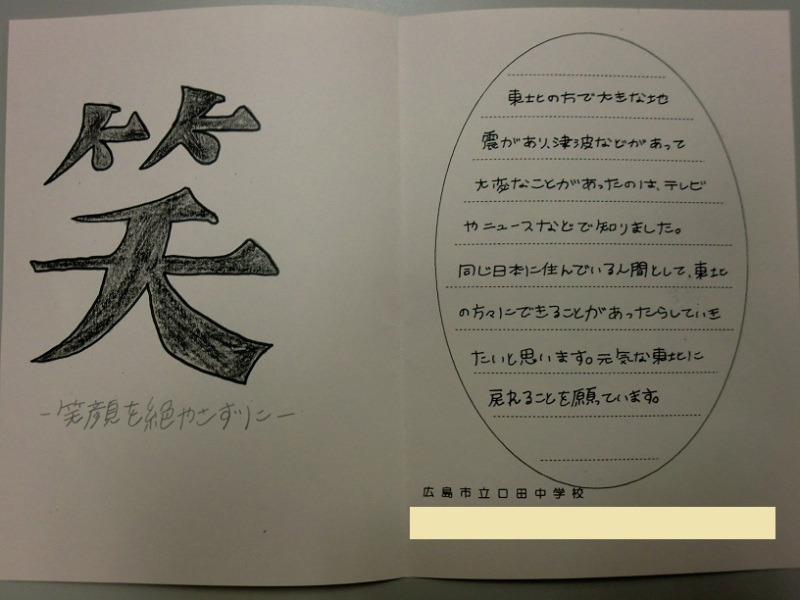 笑
-笑顔を絶やさずに-
東北の方で大きな地
震があり、津波などがあって
大変なことがあったのは、テレビ
やニュースなどで知りました。
同じ日本に住んでいる人間として、東北
の方々にできることがあったらしていき
たいと思います。元気な東北に
戻れることを願っています。
広島市立口田中学校